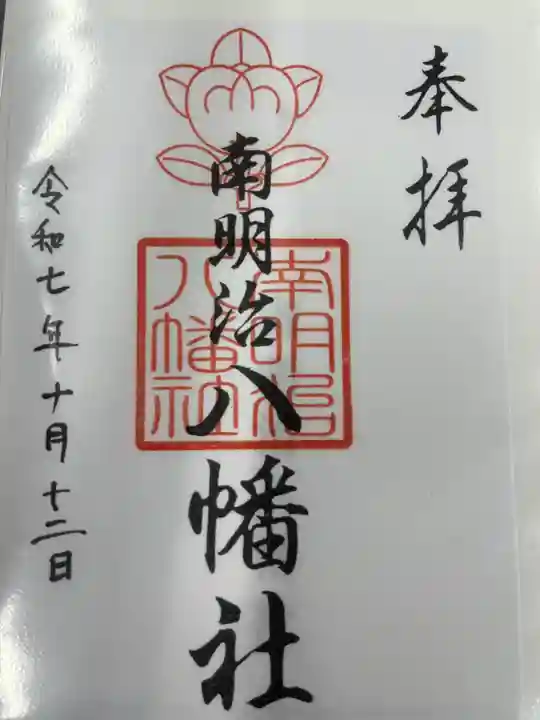 奉拝
南明治八幡社
南明治
八幡社
令和七年十月十二日